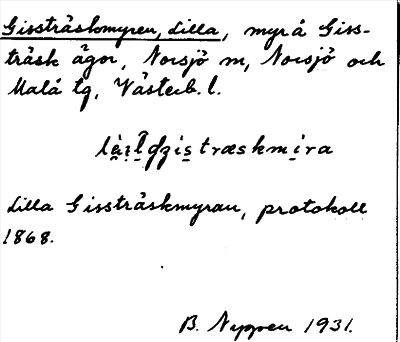 Gissträskmyren, Lilla, myr å Giss-
träsk ägor, Norsjö sn, Norsjö och
Malå tg, Västerb. l.
Lilla Gissträskmyran, protokoll
1868.
B. Nygren 1931.